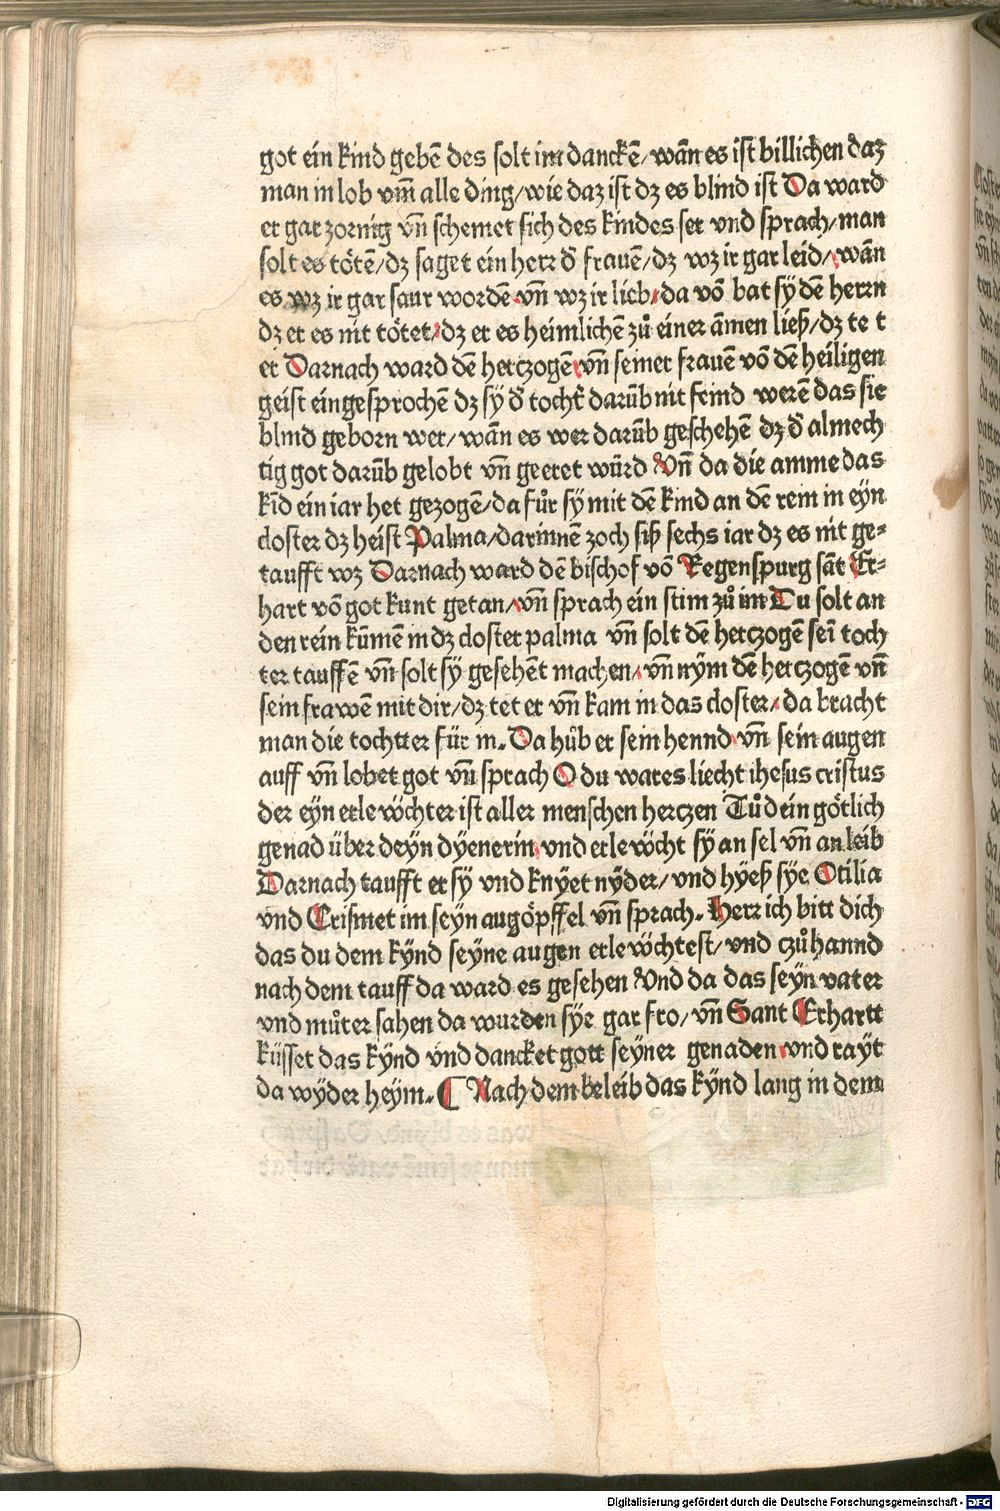 got ein kind gebē des solt im danckē/wān es ist billichen daz
man in lob vm̄ alle ding/wie daz ist dz es blind ist Da ward
er gar zornig vn̄ schemet sich des kindes ser vnd sprach/man
solt es tötē/dz saget ein herr d̕ frauē/dz wz ir gar leid/wān
es wz ir gar saur wordē vn̄ wz ir lieb/da vō bat sy̎ dē herrn
dz er es nit tötet/dz er es heimlichē zů einer āmen ließ/dz te t
er Darnach ward dē hertzogē vn̄ seiner frauē vō dē heiligen
geist eingesprochē dz sy̎ d̕ tocht̕ darūb nit feind werē das sie
blind geborn wer/wān es wer darūb geschehē dz d̕ almech
tig got darūb gelobt vn̄ geeret würd Vn̄ da die amme das
kīd ein iar het gezogē/da fůr sy̎ mit dē kind an dē rein in eyn
closter dz heist Palma/darinnē zoch siß sechs iar dz es nit ge⸗
taufft wz Darnach ward dē bischof vō Regenspurg sāt Er⸗
hart vō got kunt getan/vn̄ sprach ein stim zů im Du solt an
den rein kūmē in dz closter palma vn̄ solt dē hertzogē sei̅ toch
ter tauffē vn̄ solt sy̎ gesehent machen/vn̄ ny̎m dē hertzogē vn̄
sein frawē mit dir/dz tet er vn̄ kam in das closter/da bracht
man die tochtter für in. Da hůb er sein hennd vn̄ sein augen
auff vn̄ lobet got vn̄ sprach O du wares liecht ihesus cristus
der ey̎n erlewchter ist aller menschen hertzen Tů dein götlich
genad über dey̎n dy̎enerin vnd erlewcht sy̎ an sel vn̄ an leib
Darnach taufft er sy̎ vnd kny̎et ny̎der/vnd hy̎eß sy̎e Otilia
vnd Crismet im sey̎n augöpffel vn̄ sprach. Herr ich bitt dich
das du dem ky̎nd sey̎ne augen erlewchtest/vnd czůhannd
nach dem tauff da ward es gesehen Vnd da das sey̎n vater
vnd můter sahen da wurden sy̎e gar fro/vn̄ Sant Erhartt
küsset das ky̎nd vnd dancket gott sey̎ner genaden vnd ray̎t
da wy̎der hey̎m. ¶ Nach dem beleib das ky̎nd lang in dem
Digitalisierung gefördert durch die Deutsche Forschungsgemeinschaft - DFG